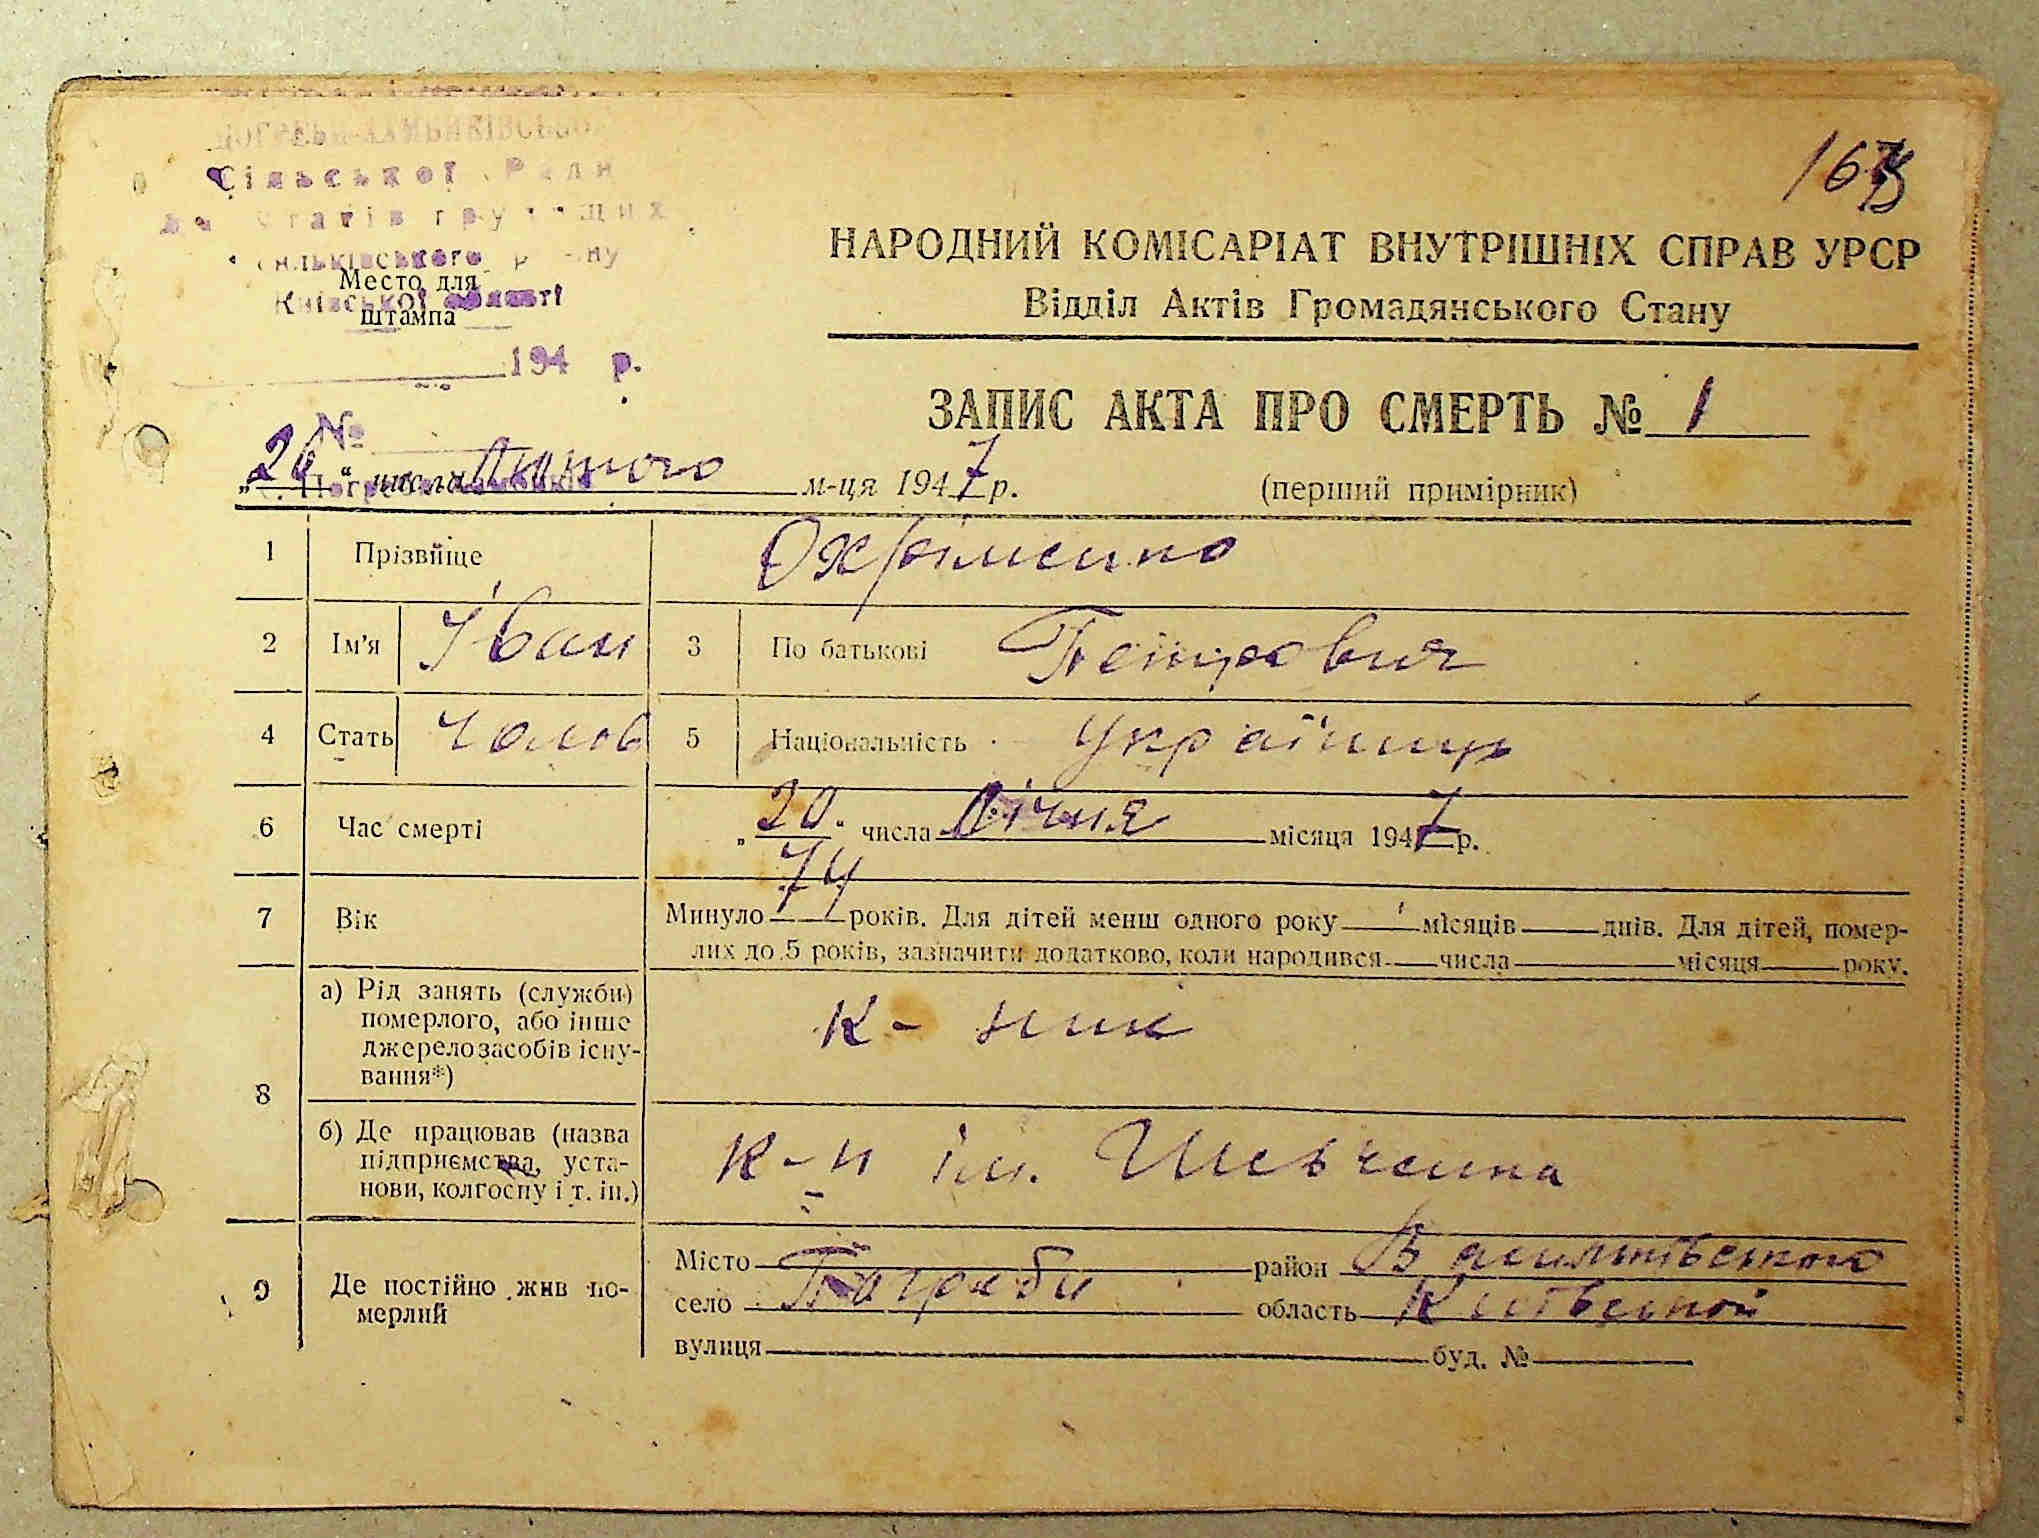 Сільської Ради
Київської області
Место для
штампа
194 р.
№
167
НАРОДНИЙ КОМІСАРІАТ ВНУТРІШНІХ СПРАВ УРСР
Відділ Актів Громадянського Стану
ЗАПИС АКТА ПРО СМЕРТЬ № 1
„26“ числа Лютого м-ця 1947 р. (перший примірник)
1 Прізвище Охріменко
2 Ім'я Іван 3 По батькові Петрович
4 Стать Чолов 5 Національність Українець
6 Час смерті „20. числа Січня місяця 1947 р.
7 Вік Минуло 74 років. Для дітей менш одного року місяців днів. Для дітей, помер-
лих до 5 років, зазначити додатково, коли народився числа місяця року.
8 а) Рід занять (служби)
померлого, або інше
джерело засобів існу-
вання*)
к-ник
б) Де працював (назва
підприємства, уста-
нови, колгоспу і т. ін.)
к-п ім. Шевченка
9 Де постійно жив по-
мерлий
Місто район Васильківського
село Погреби область Київської
вулиця буд. №